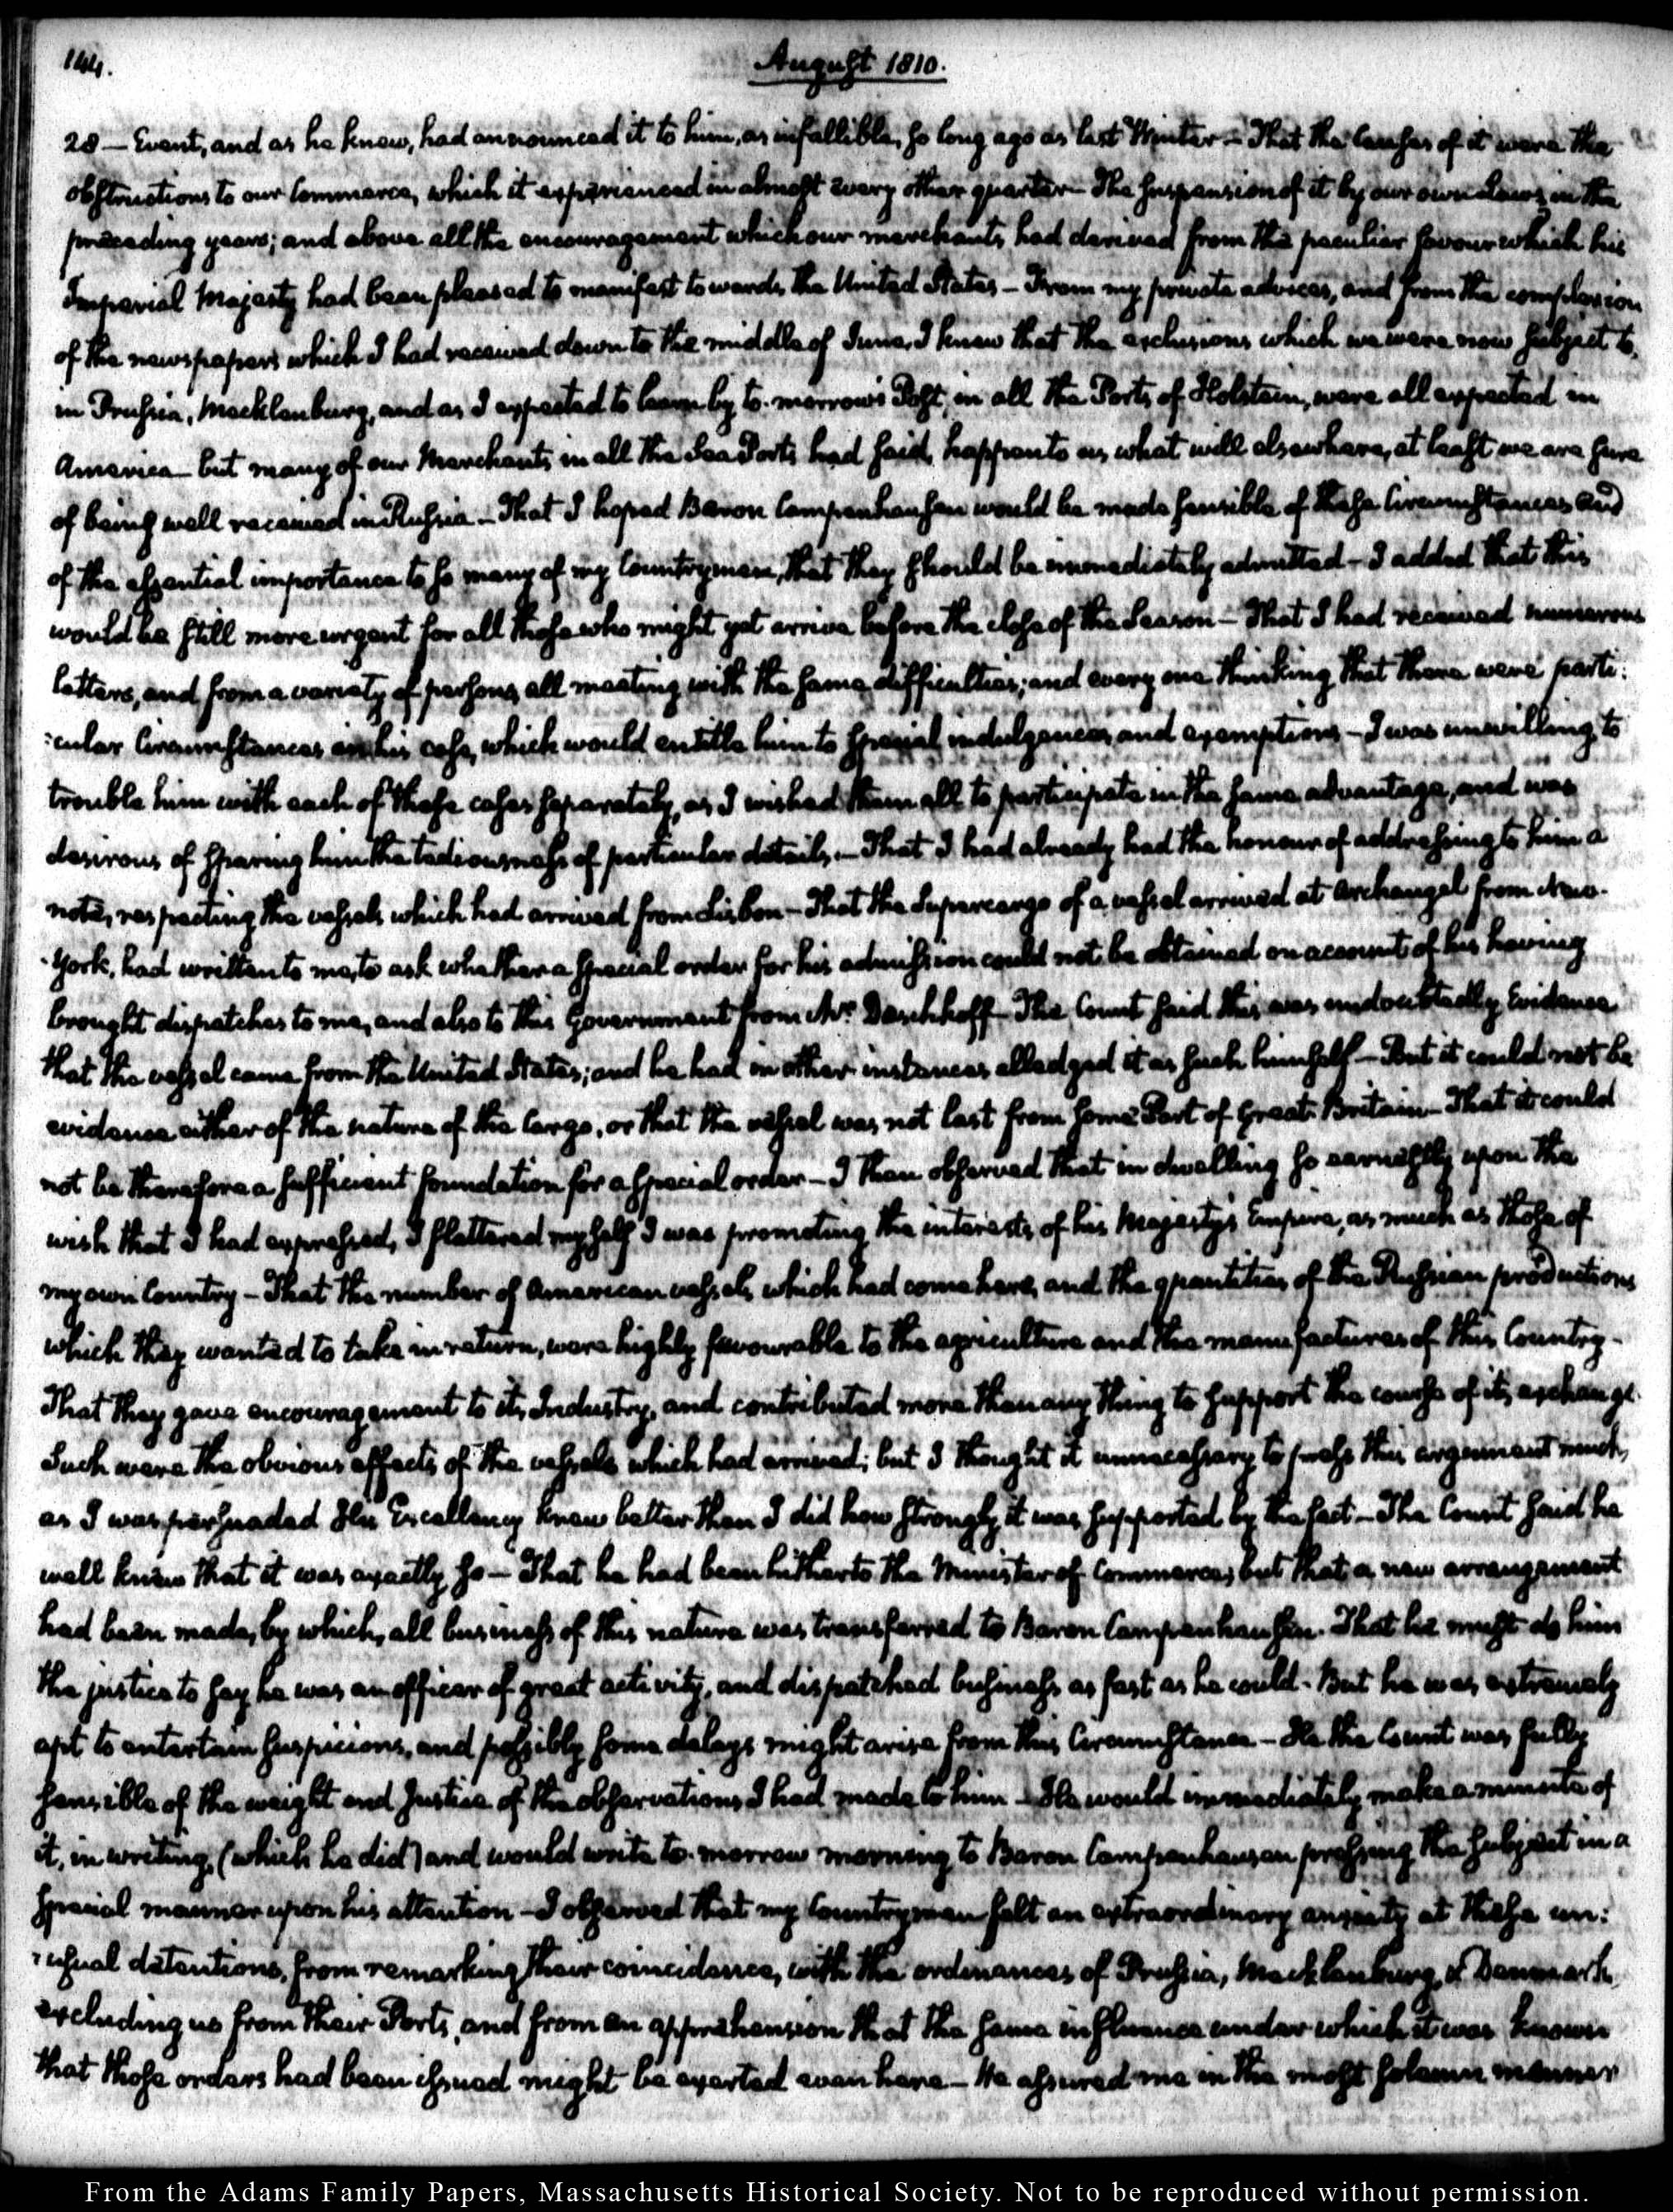 144.
August 1810.
28 — Event, and as he knew, had announced it to him, as infallible, so long ago as last Winter — That the Causes of it were the
obstructions to our Commerce, which it experienced in almost every other quarter — The suspension of it by our own Laws, in the
preceding years; and above all the encouragement which our merchants, had derived from the peculiar favour which his
Imperial Majesty had been pleased to manifest towards, the United States — From my private advices, and from the complexion
of the newspapers which I had received down to the middle of June, I knew that the exclusions which we were now subject to,
in Prussia, Mecklenburg, and as I expected to learn by to-morrow's Post, in all the Ports of Holstein, were all expected in
America — but many of our Merchants in all the Sea Ports had said, happen to us what will elsewhere, at least we are sure
of being well received in Russia — That I hoped Baron Campenhausen would be made sensible of these Circumstances and
of the essential importance to so many of my Countrymen, that they should be immediately admitted — I added that this
would be still more urgent for all those who might yet arrive before the close of the Season — That I had received numerous
letters, and from a variety of persons, all meeting with the same difficulties; and every one thinking that there were parti:
:cular Circumstances in his case, which would entitle him to special indulgences, and exemptions — I was unwilling to
trouble him with each of these cases separately, as I wished them all to participate in the same advantage, and was
desirous of sparing him the tediousness of particular details. — That I had already had the honour of addressing to him a
note, respecting the vessels which had arrived from Lisbon — That the Supercargo of a vessel arrived at Archangel from New-
-York, had written to me, to ask whether a special order for his admission could not be obtained on account of his having
brought dispatches to me, and also to this Government from Mr. Daschkoff — The Count said this was undoubtedly Evidence
that the vessel came from the United States; and he had in other instances alledged it as such himself — But it could not be
evidence either of the nature of the Cargo, or that the vessel was not last from some Port of Great-Britain — That it could
not be therefore a sufficient foundation for a special order — I then observed that in dwelling so earnestly upon the
wish that I had expressed, I flattered myself I was promoting the interests of his Majesty's Empire, as much as those of
my own Country — That the number of American vessels, which had come here, and the quantities of the Russian productions
which they wanted to take in return, were highly favourable to the agriculture and the manufactures of this Country —
That they gave encouragement to its Industry, and contributed more than any thing to support the course of its exchange.
Such were the obvious effects of the vessels which had arrived; but I thought it unnecessary to press this argument much,
as I was persuaded His Excellency knew better than I did how strongly it was supported by the fact — The Count said he
well knew that it was exactly so — That he had been hitherto the Minister of Commerce; but that a new arrangement
had been made, by which, all business of this nature was transferred to Baron Campenhausen. That he must do him
the justice to say he was an officer of great activity, and dispatched business as fast as he could. But he was extremely
apt to entertain suspicions, and possibly some delays might arise from this Circumstance — He the Count was fully
sensible of the weight and Justice of the observations I had made to him — He would immediately make a minute of
it, in writing, (which he did) and would write to-morrow morning to Baron Campenhausen pressing the subject in a
special manner upon his attention — I observed that my Countrymen felt an extraordinary anxiety at these un:
:usual detentions, from remarking their coincidence, with the ordinances of Prussia, Mecklenburg, & Denmark,
excluding us from their Ports, and from an apprehension that the same influence under which it was known
that those orders had been issued might be exerted even here — He assured me in the most solemn manner
From the Adams Family Papers, Massachusetts Historical Society. Not to be reproduced without permission.